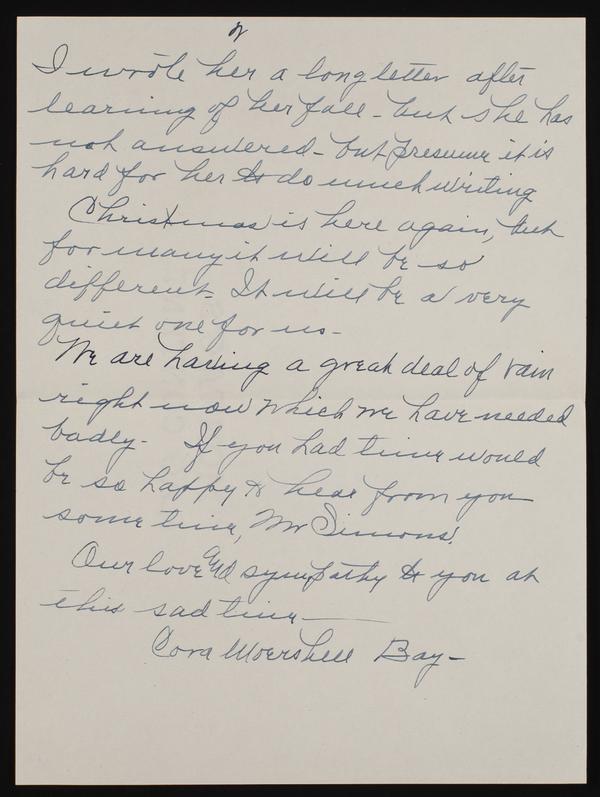 2
I wrote her a long letter after
learning of her fall - but she has
not answered - but presume it is
hard for her to do much writing
Christmas is here again, but
for many it will be so
different. It will be a very
quiet one for us -
We are having a great deal of rain
right now which we have needed
badly. If you had time would
be so happy to hear from you
some time, Mr Simons.
Our love and sympathy to you at
this sad time
Cora Moershell Bay -